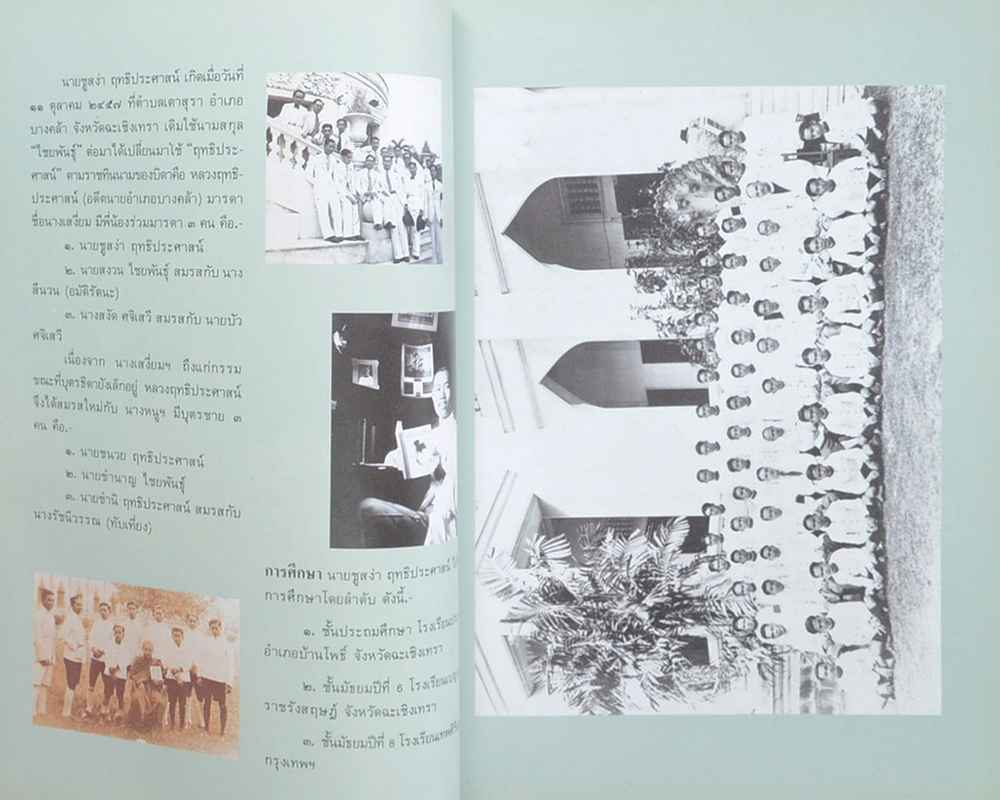 นายชูสง่า ฤทธิประศาสน์ เกิดเมื่อวันที่
๑๑ ตุลาคม ๒๔๕๗ ที่ตำบลเตาสุรา อำเภอ
บางคล้า จังหวัดฉะเชิงเทรา เดิมใช้นามสกุล
“ไชยพันธุ์” ต่อมาได้เปลี่ยนมาใช้ “ฤทธิประ-
ศาสน์” ตามราชทินนามของบิดาคือ หลวงฤทธิ-
ประศาสน์ (อดีตนายอำเภอบางคล้า) มารดา
ชื่อนางเสงี่ยม มีพี่น้องร่วมมารดา ๓ คน คือ.-
๑. นายชูสง่า ฤทธิประศาสน์
๒. นายสงวน ไชยพันธุ์ สมรสกับ นาง
สีนวน (อมัติรัตนะ)
๓. นางสงัด ศจิเสวี สมรสกับ นายบัว
ศจิเสวี
เนื่องจาก นางเสงี่ยมฯ ถึงแก่กรรม
ขณะที่บุตรธิดายังเล็กอยู่ หลวงฤทธิประศาสน์
จึงได้สมรสใหม่กับ นางหนูฯ มีบุตรชาย ๓
คน คือ.-
๑. นายชนวย ฤทธิประศาสน์
๒. นายชำนาญ ไชยพันธุ์
๓. นายชำนิ ฤทธิประศาสน์ สมรสกับ
นางรัชนีวรรณ (ทับเที่ยง)
การศึกษา นายชูสง่า ฤทธิประศาสน์
การศึกษาโดยลำดับ ดังนี้.-
๑. ชั้นประถมศึกษา
อำเภอบ้านโพธิ์ จังหวัดฉะเชิงเทรา
๒. ชั้นมัธยมปีที่ 6
ราชรังสฤษฎ์ จังหวัดฉะเชิงเทรา
๓. ชั้นมัธยมปีที่ 8
กรุงเทพฯ